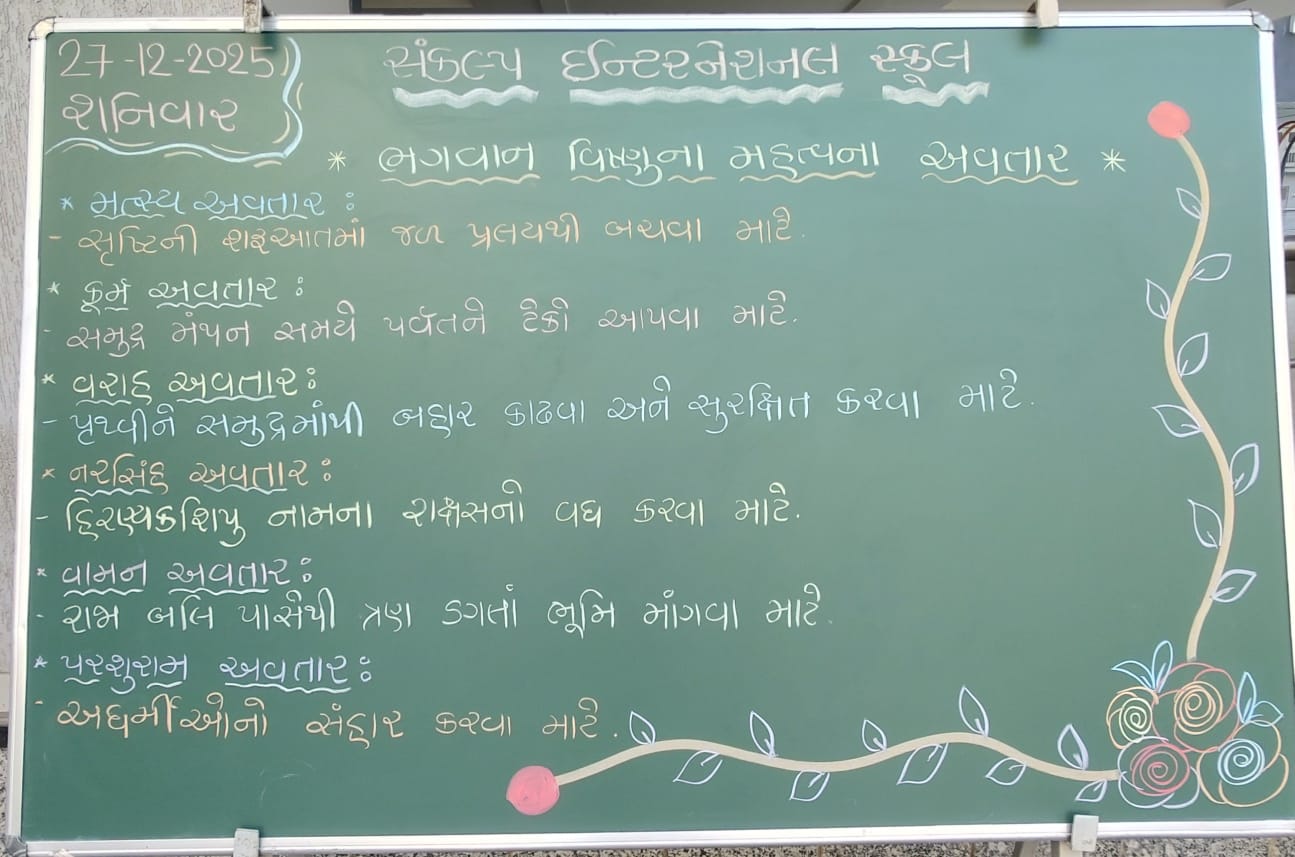 27-12-2025
શનિવાર
સંકલ્પ ઈન્ટરનેશનલ સ્કૂલ
* ભગવાન વિષ્ણુના મહત્વના અવતાર *
* મત્સ્ય અવતાર :
- સૃષ્ટિની શરૂઆતમાં જળ પ્રલયથી બચવા માટે.
* કૂર્મ અવતાર :
- સમુદ્ર મંથન સમયે પર્વતને ટેકો આપવા માટે.
* વરાહ અવતાર :
- પૃથ્વીને સમુદ્રમાંથી બહાર કાઢવા અને સુરક્ષિત કરવા માટે.
* નરસિંહ અવતાર :
- હિરણ્યકશિપુ નામના રાક્ષસનો વધ કરવા માટે.
* વામન અવતાર :
- રાજા બલિ પાસેથી ત્રણ ડગલાં ભૂમિ માંગવા માટે.
* પરશુરામ અવતાર :
- અધર્મીઓનો સંહાર કરવા માટે.